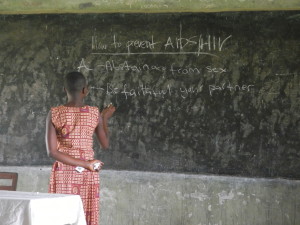 How to prevent AIDS/HIV
A - Abstaining from sex
B - faithful your partner